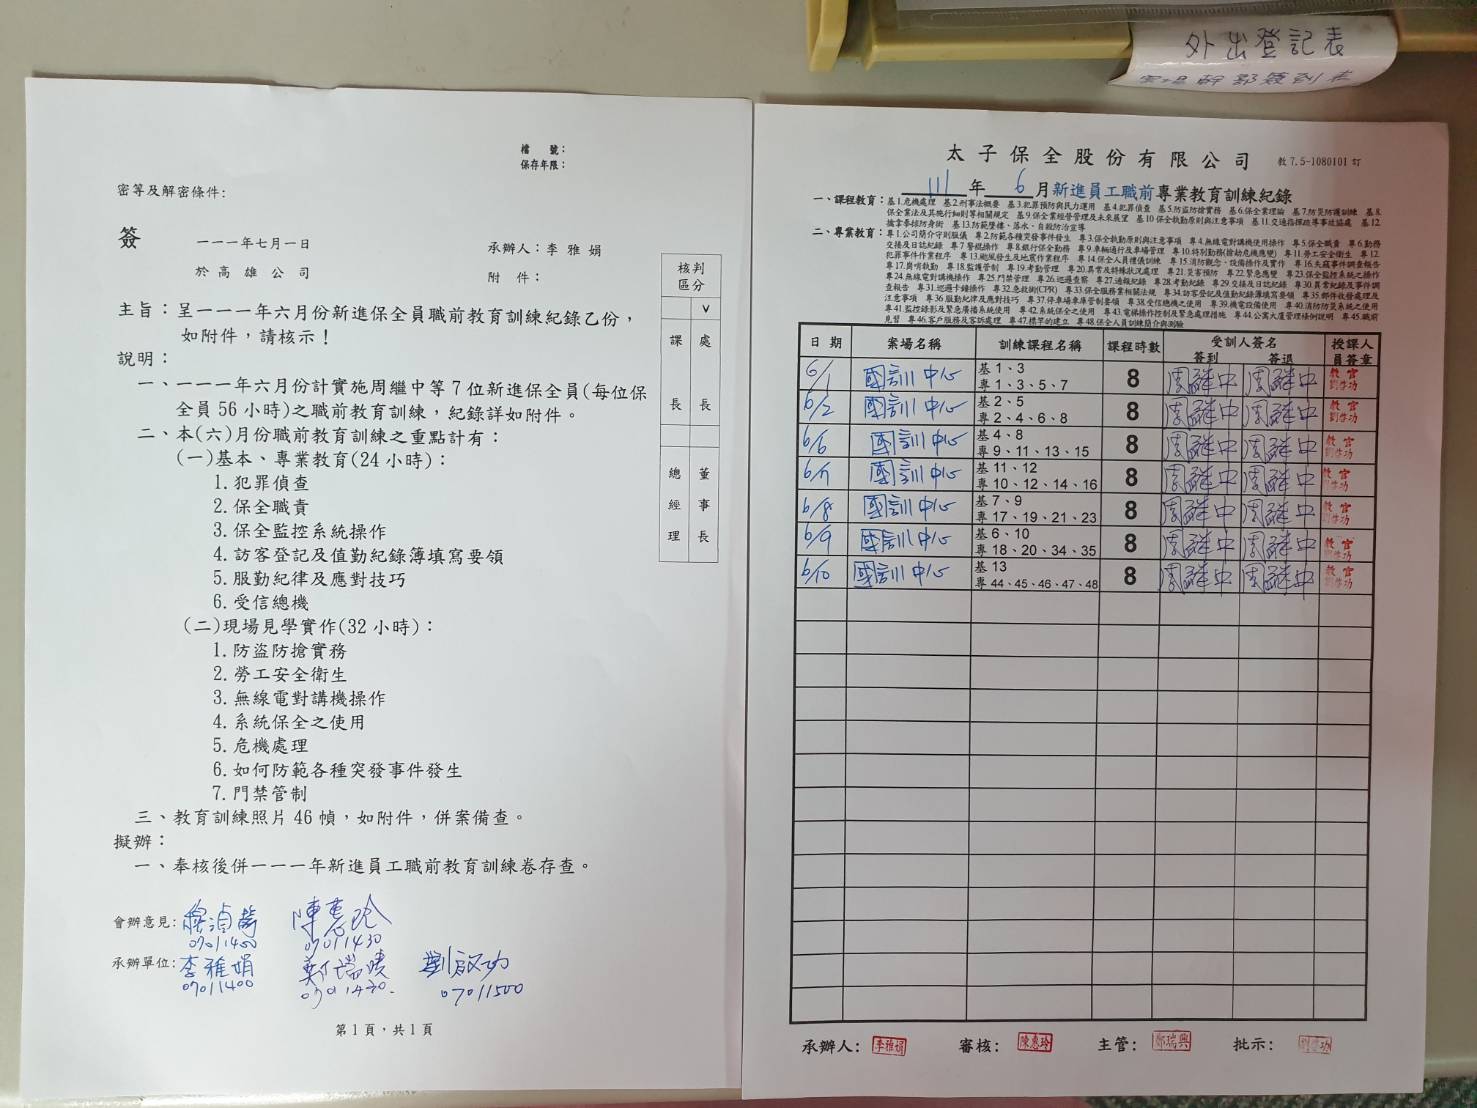 外出登記表
檔　號：
保存年限：
密等及解密條件:
簽
一一一年七月一日
承辦人：李雅娟
於高雄公司
附　件：
核判
區分
v
課長
處長
總經理
董事長
主旨：呈一一一年六月份新進保全員職前教育訓練紀錄乙份，
如附件，請核示！
說明：
一、一一一年六月份計實施周繼中等7位新進保全員(每位保
全員56小時)之職前教育訓練，紀錄詳如附件。
二、本(六)月份職前教育訓練之重點計有：
(一)基本、專業教育(24小時)：
1.犯罪偵查
2.保全職責
3.保全監控系統操作
4.訪客登記及值勤紀錄簿填寫要領
5.服勤紀律及應對技巧
6.受信總機
(二)現場見學實作(32小時)：
1.防盜防搶實務
2.勞工安全衛生
3.無線電對講機操作
4.系統保全之使用
5.危機處理
6.如何防範各種突發事件發生
7.門禁管制
三、教育訓練照片46幀，如附件，併案備查。
擬辦：
一、奉核後併一一一年新進員工職前教育訓練卷存查。
會辦意見:
07011400 07011430
承辦單位: 李雅娟 劉啟功
07011400 07011500
第1頁，共1頁
太子保全股份有限公司 教7.5-1080101訂
111年6月新進員工職前專業教育訓練紀錄
一、課程教育：基1.危機處理 基2.刑事法概要 基3.犯罪預防與民力運用 基4.犯罪偵查 基5.防盜防搶實務 基6.保全業理論 基7.防災防護訓練 基8.
保全業法及其施行細則等相關規定 基9.保全業經營管理及未來展望 基10.保全執勤原則與注意事項 基11.交通指揮疏導事故協處 基12.
擒拿拳條防身術 基13.防範墜樓、落水、自殺防治宣導
二、專業教育：專1.公司簡介守則服儀 專2.防範各種突發事件發生 專3.保全執勤原則與注意事項 專4.無線電對講機使用操作 專5.保全職責 專6.勤務
交接及日誌紀錄 專7.警棍操作 專8.銀行保全勤務 專9.車輛通行及車場管理 專10.特別勤務(搶劫危機應變) 專11.勞工安全衛生 專12.
犯罪事件作業程序 專13.颱風發生及地震作業程序 專14.保全人員禮儀訓練 專15.消防觀念、設備操作及實作 專16.失竊事件調查報告
專17.崗哨執勤 專18.監護管制 專19.考勤管理 專20.異常及特殊狀況處理 專21.災害預防 專22.緊急應變 專23.保全監控系統之操作
專24.無線電對講機操作 專25.門禁管理 專26.巡邏查察 專27.通報紀錄 專28.考勤紀錄 專29.交接及日誌紀錄 專30.異常紀錄及事件調
查報告 專31.巡邏卡鐘操作 專32.急救術(CPR) 專33.保全服務業相關法規 專34.訪客登記及值勤紀錄簿填寫要領 專35.郵件收發處理及
注意事項 專36.服勤紀律及應對技巧 專37.停車場車庫管制要領 專38.受信總機之使用 專39.機電設備使用 專40.消防防災系統之使用
專41.監控錄影及緊急廣播系統使用 專42.系統保全之使用 專43.電梯操作控制及緊急處理措施 專44.公寓大廈管理條例說明 專45.職前
見習 專46.客戶服務及客訴處理 專47.標竿的建立 專48.保全人員訓練簡介與測驗
日期 案場名稱 訓練課程名稱 課程時數 受訓人簽名 簽到 簽退 授課人員簽章
6/1 國訓中心 基1、3 專1、3、5、7 8 周繼中 周繼中 教官 劉啓功
6/2 國訓中心 基2、5 專2、4、6、8 8 周繼中 周繼中 教官 劉啓功
6/6 國訓中心 基4、8 專9、11、13、15 8 周繼中 周繼中 教官 劉啓功
6/7 國訓中心 基11、12 專10、12、14、16 8 周繼中 周繼中 教官 劉啓功
6/8 國訓中心 基7、9 專17、19、21、23 8 周繼中 周繼中 教官 劉啓功
6/9 國訓中心 基6、10 專18、20、34、35 8 周繼中 周繼中 教官 劉啓功
6/10 國訓中心 基13 專44、45、46、47、48 8 周繼中 周繼中 教官 劉啓功
承辦人：李雅娟 審核：陳惠玲 主管：鄭瑞興 批示：